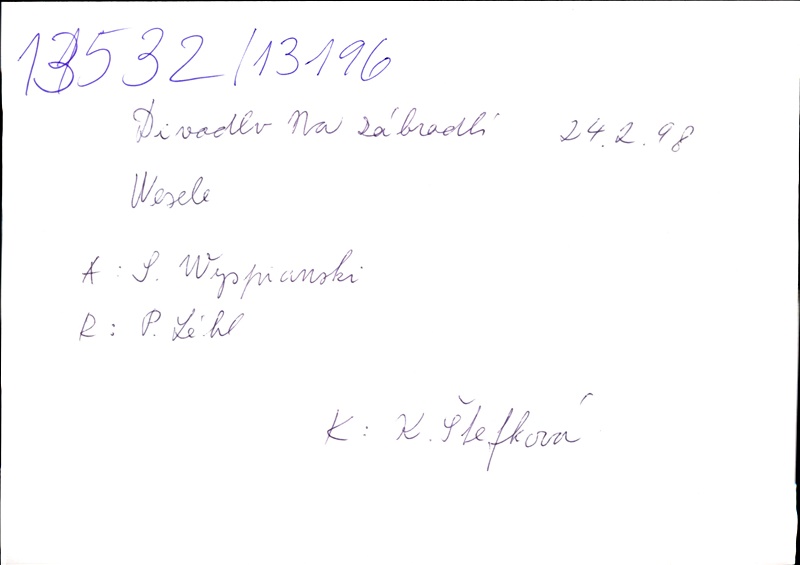 13532/13196
Divadlo Na zábradlí 24.2.98
Wesele
A: S. Wyspianski
R: P. Lébl
K: K. Štefková